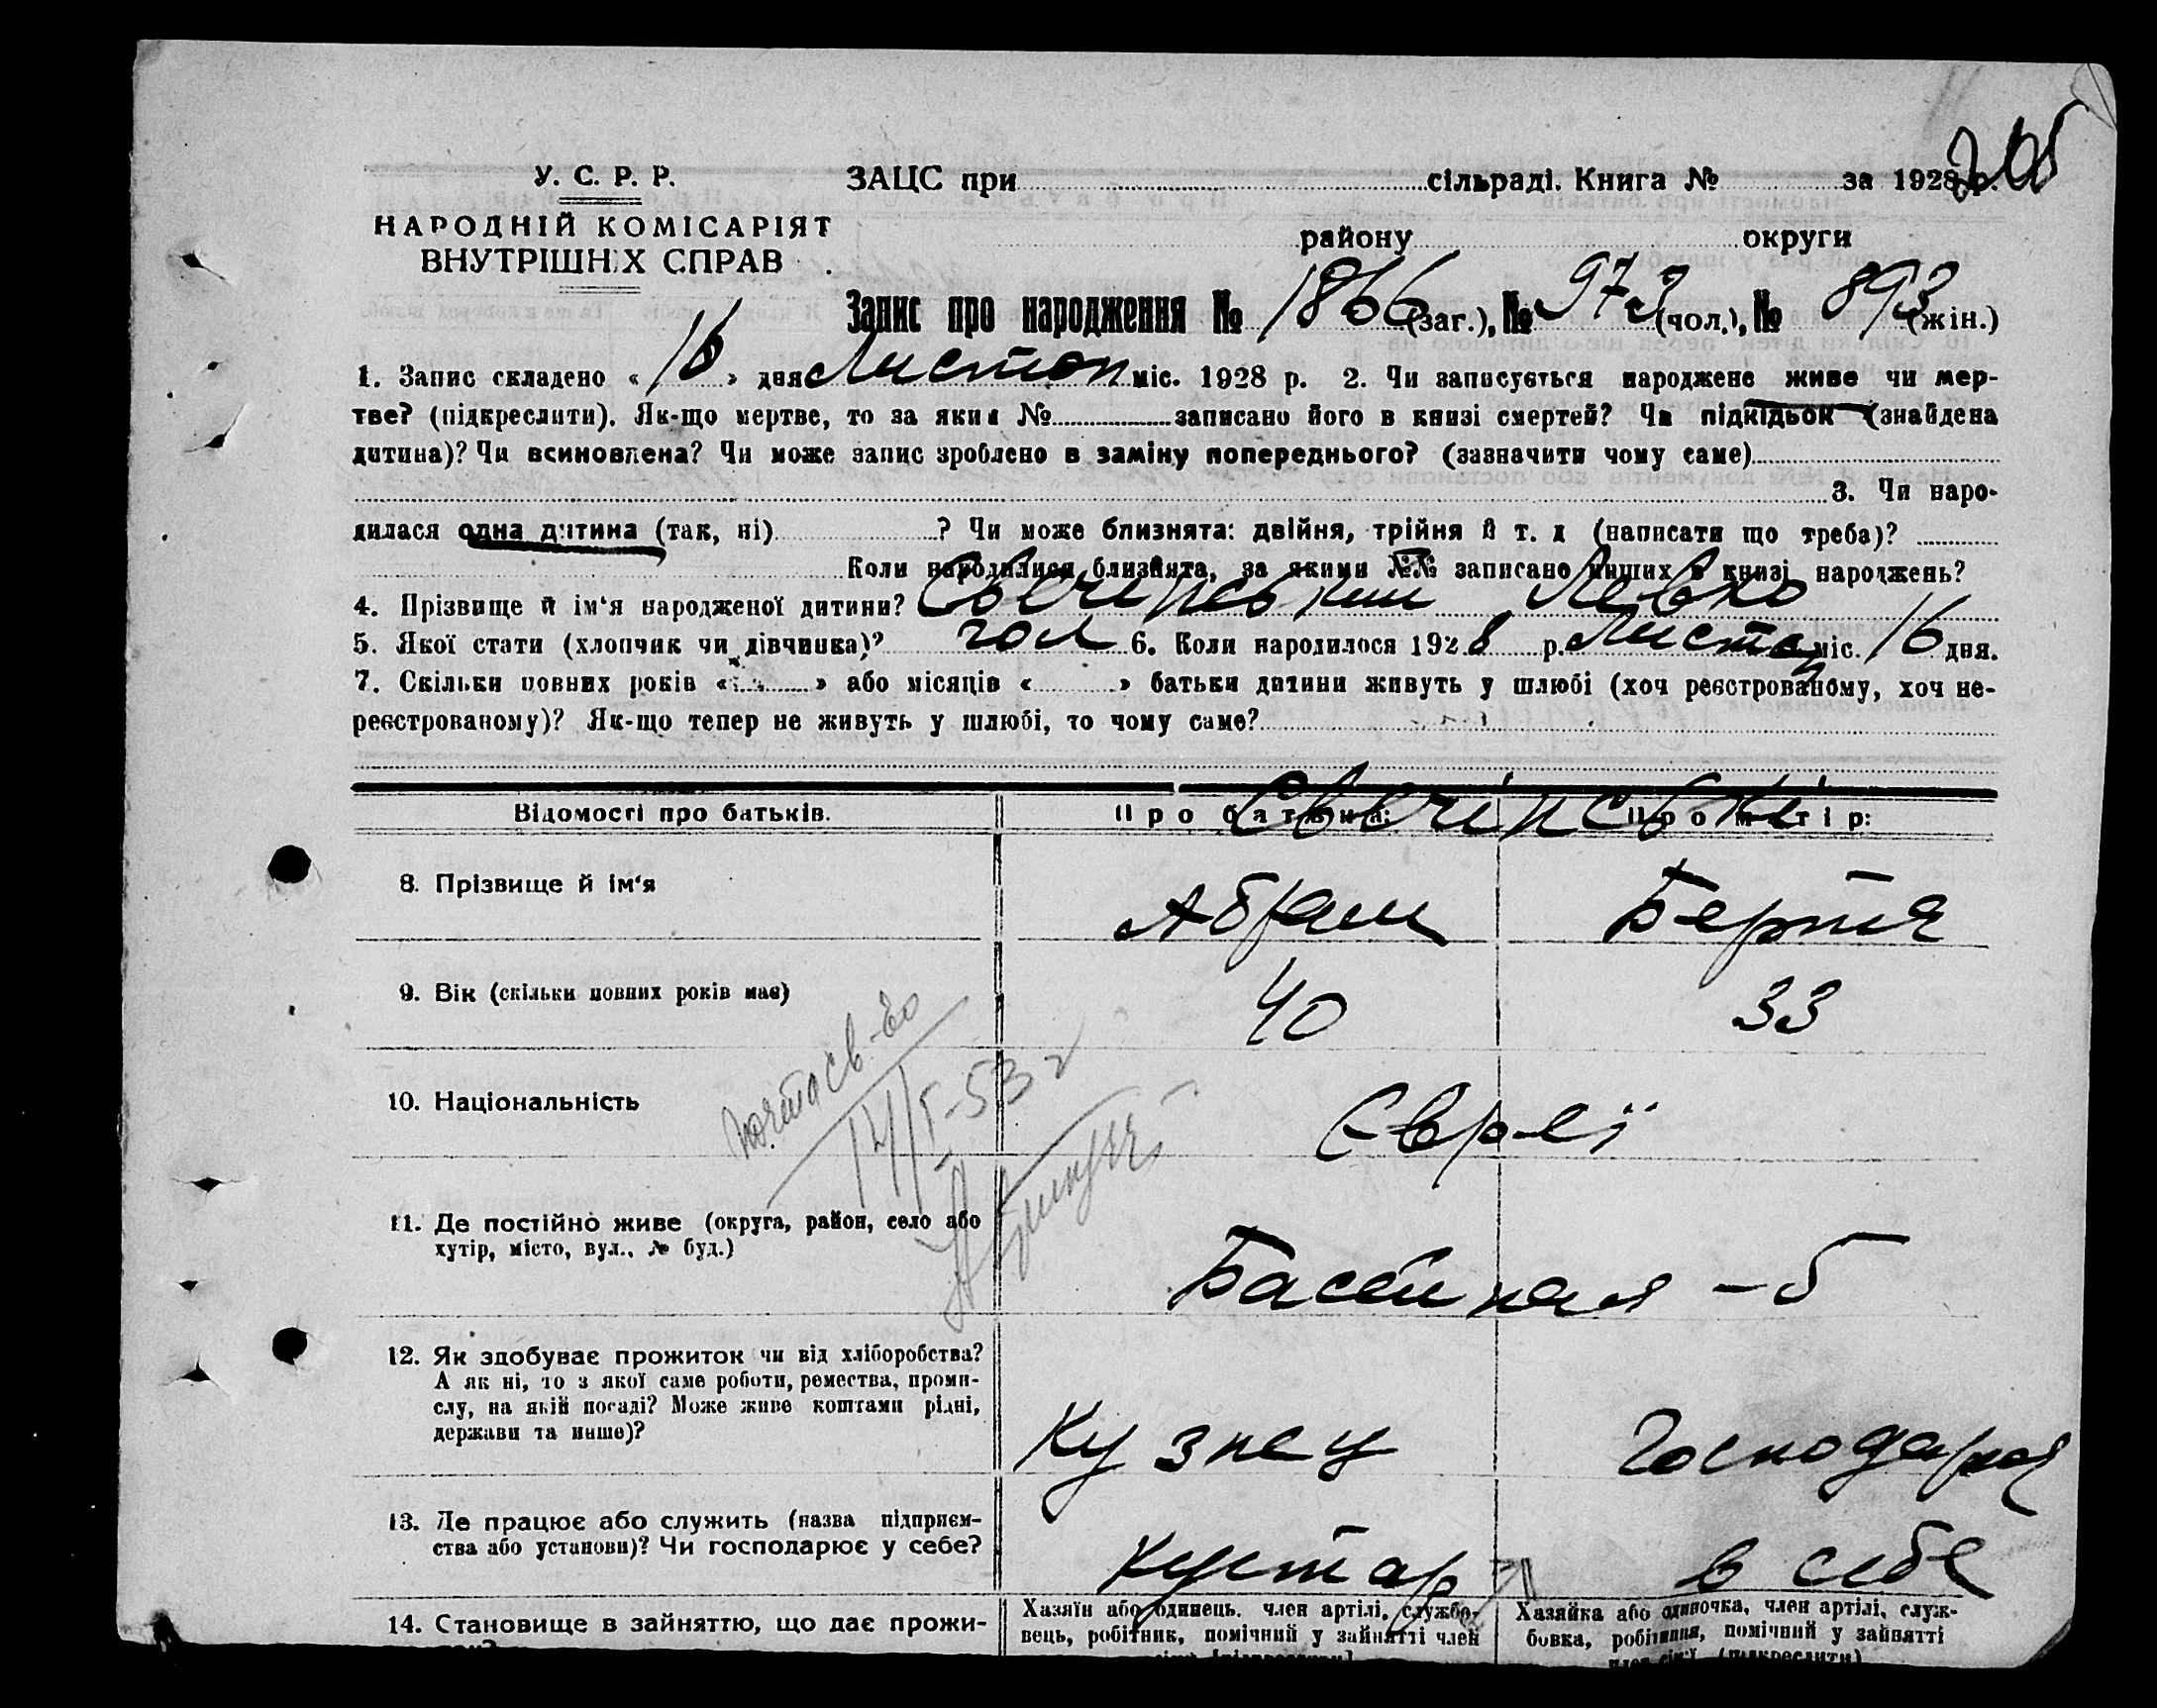 205
У. С. Р. Р. ЗАЦС при сільраді. Книга № за 1928 р.
НАРОДНІЙ КОМІСАРІЯТ
ВНУТРІШНІХ СПРАВ
району округи
Запис про народження № 1866 (заг.), № 973 (чол.), № 893 (жін.)
1. Запис складено « 16 » дня Листоп міс. 1928 р. 2. Чи записується народжене живе чи мер-
тве? (підкреслити). Як-що мертве, то за яким № записано його в книзі смертей? Чи підкідьок (знайдена
дитина)? Чи всиновлена? Чи може запис зроблено в заміну попереднього? (зазначити чому саме)
3. Чи наро-
дилася одна дитина (так, ні) ? Чи може близнята: двійня, трійня й т. д (написати що треба)?
Коли народилися близнята, за якими №№ записано инших в книзі народжень?
4. Прізвище й ім'я народженої дитини? Левко
5. Якої стати (хлопчик чи дівчинка)? чол 6. Коли народилося 1928 р. Листоп міс. 16 дня.
7. Скільки повних років « » або місяців « » батьки дитини живуть у шлюбі (хоч реєстрованому, хоч не-
реєстрованому)? Як-що тепер не живуть у шлюбі, то чому саме?
Відомості про батьків. Про батька: Про матір:
8. Прізвище й ім'я Абрам Бертя
9. Вік (скільки повних років має) 40 33
10. Національність Євреї
11. Де постійно живе (округа, район, село або
хутір, місто, вул., № буд.) Басейная - 5
12. Як здобуває прожиток чи від хліборобства?
А як ні, то з якої саме роботи, ремества, проми-
слу, на якій посаді? Може живе коштами рідні,
держави та инше)? Кузнец Господарка
13. Де працює або служить (назва підприєм-
ства або установи)? Чи господарює у себе? Кустар в себе
14. Становище в зайняттю, що дає прожи-
Хазяїн або одинець, член артілі, службо-
вець, робітник, помічний у зайнятті член
Хазяйка або одиночка, член артілі, служ-
бовка, робітниця, помічний у зайнятті
член сім'ї (підкреслити)